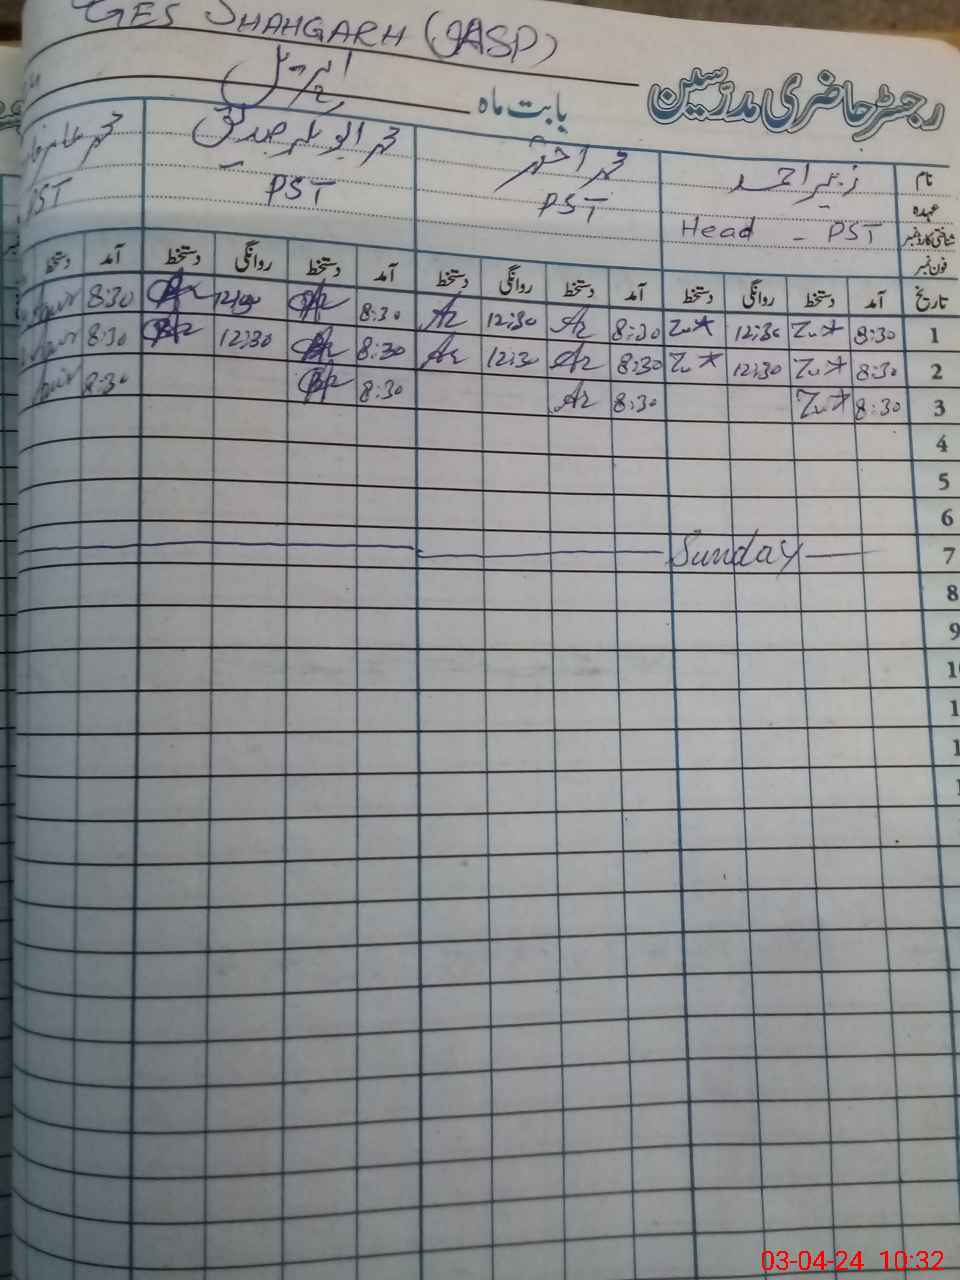 GES SHAHGARH (JASP)
رجسٹر حاضری مدرسین بابت ماہ اپریل
نام زبیر احمد محمد اختر محمد ابوبکر صدیق محمد
عہدہ PST PST PST
شناختی کارڈ نمبر Head - PST
فون نمبر
تاریخ آمد دستخط روانگی دستخط آمد دستخط روانگی دستخط آمد دستخط روانگی دستخط آمد دستخط
1 8:30 12:30 8:30 Az 12:30 Az 8:30 8:30
2 8:30 12:30 8:30 Az 12:30 Az 8:30 12:30 8:30
3 8:30 8:30 Az 8:30 8:30
4
5
6
7 Sunday
8
9
03-04-24 10:32